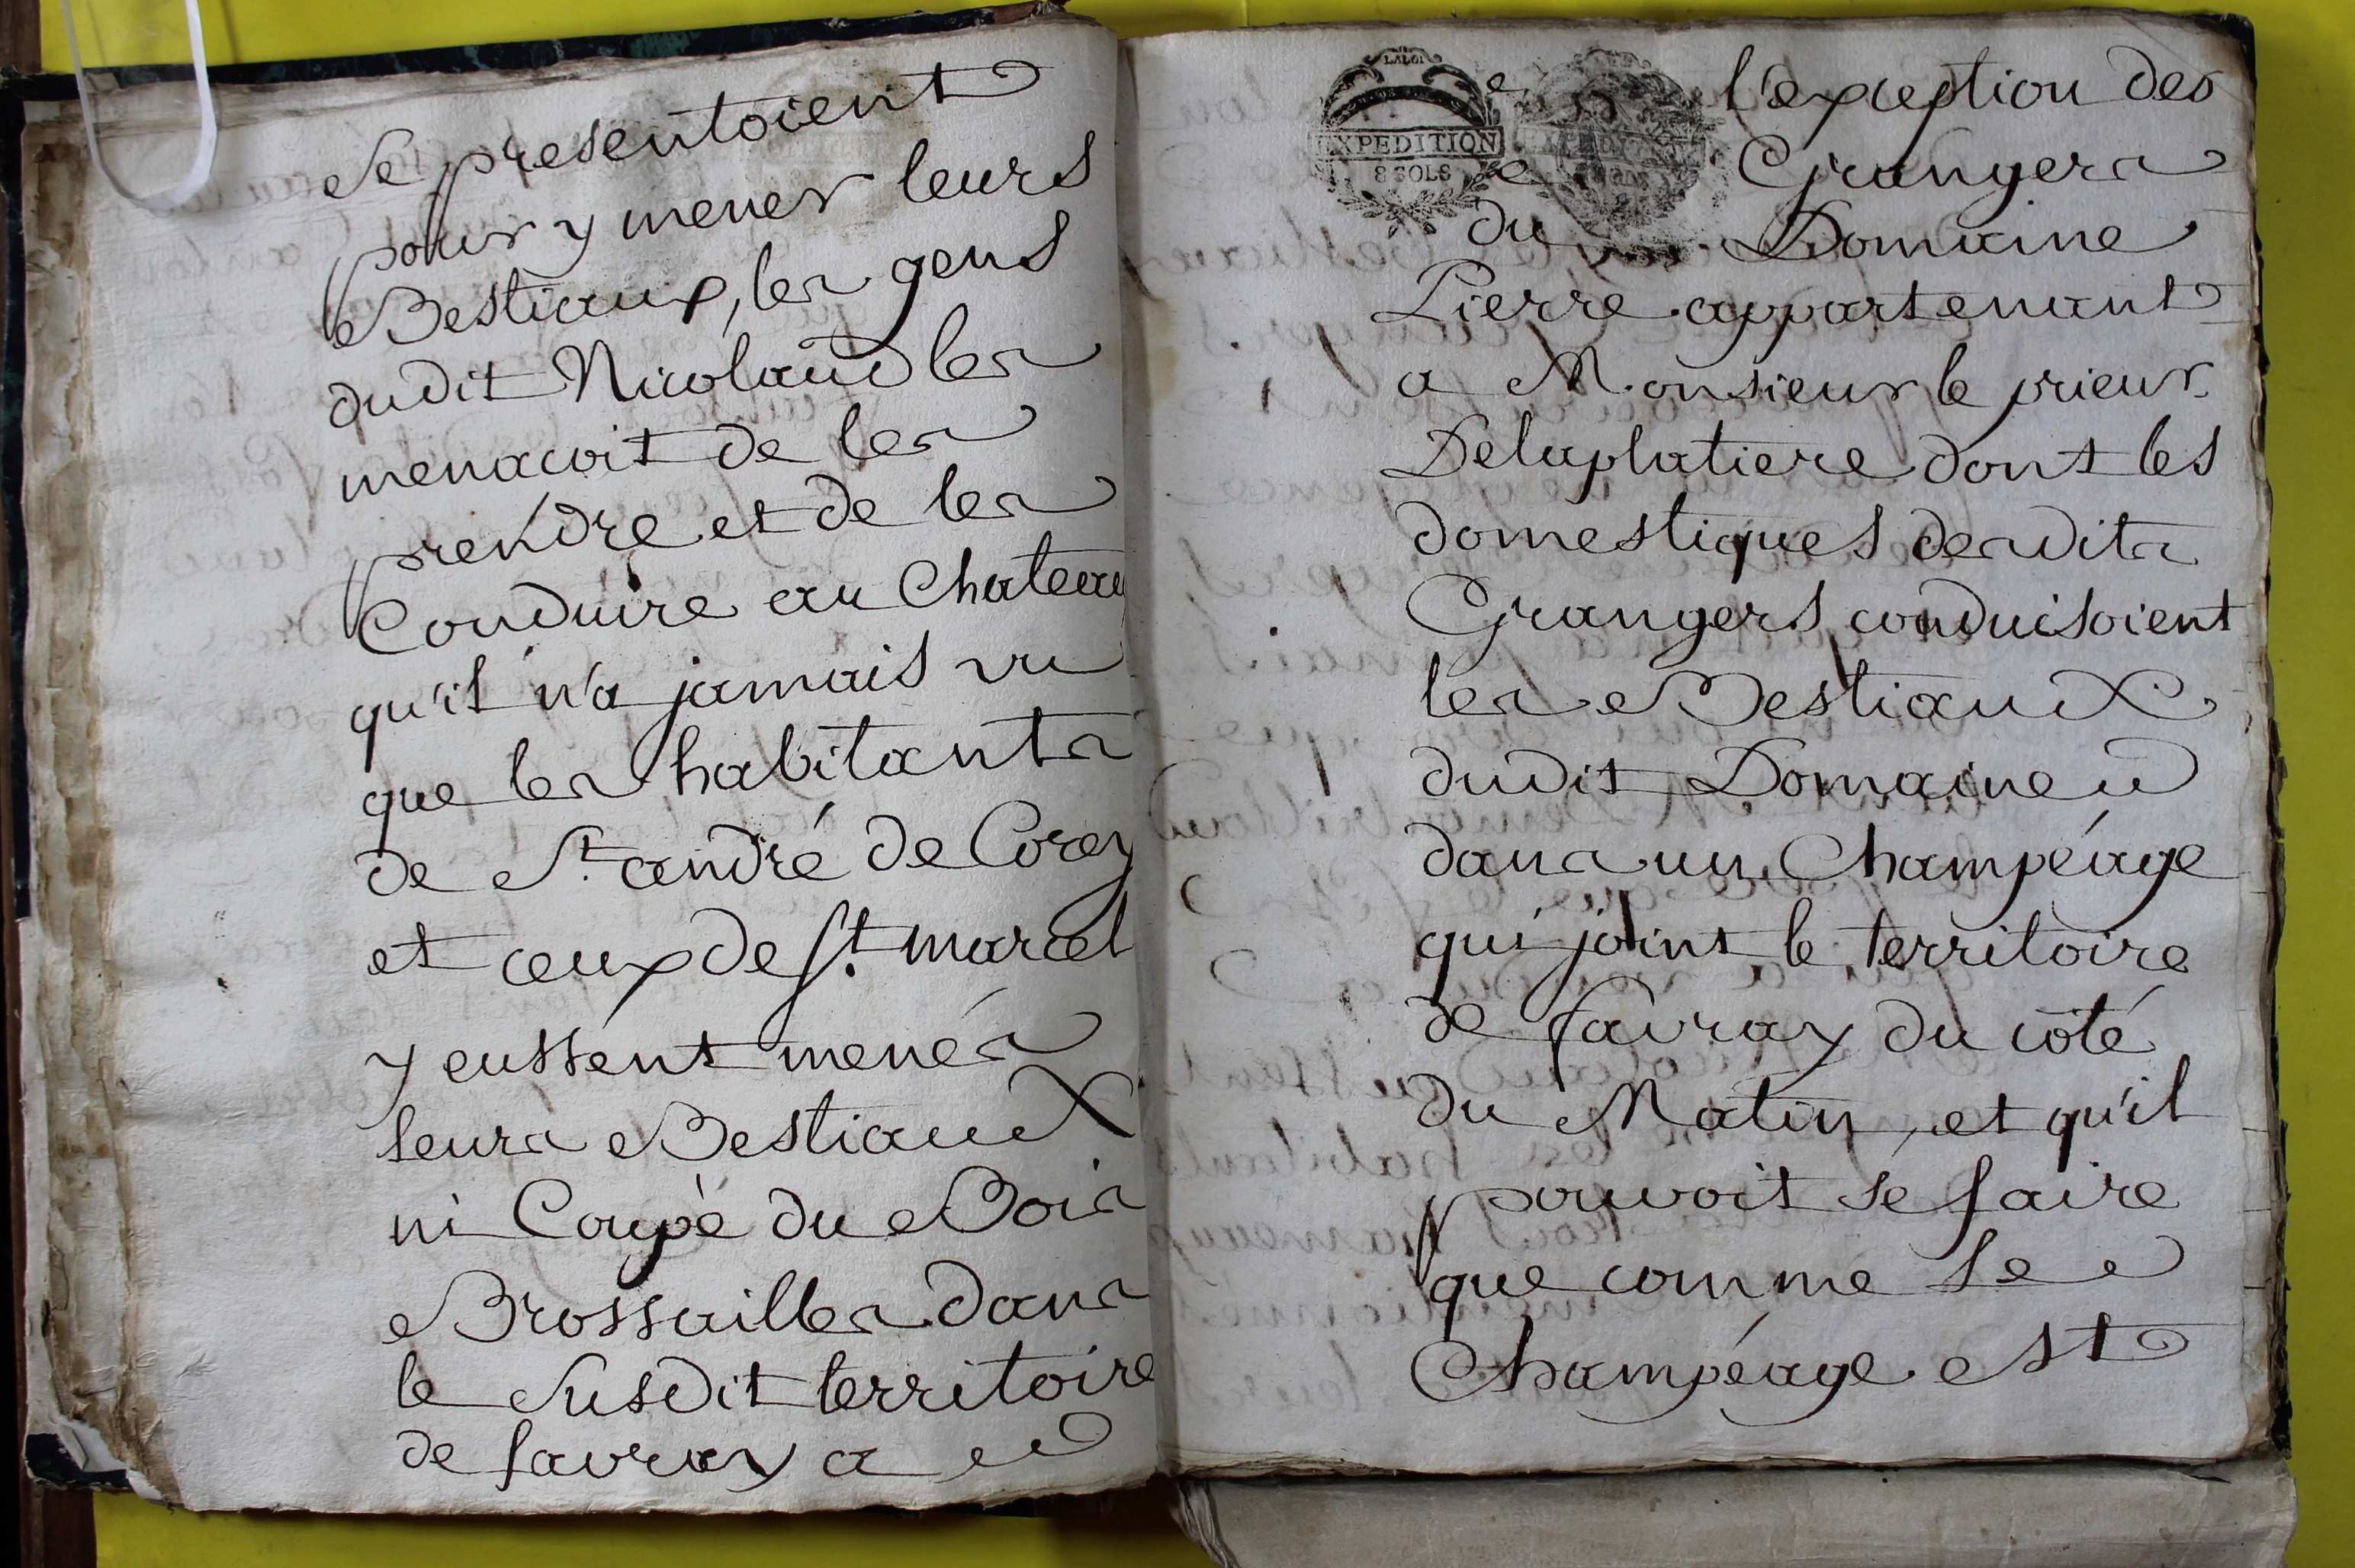 Se presentoient
pour y mener leurs
Bestiaux, les gens
dudit Nicolaud les
menacoit de les
prendre et de les
Conduire au Chateau
qu'il n'a jamais vu
que les habitants
de St. andré de Corcy
et ceux de St. marcel
y eussent menés
leurs Bestiaux
ni Coupé du Bois
Brossailles dans
le Susdit territoire
de favray a
LA LOI
EXPEDITION
8 SOLS
l'exception des
Grangers
du Domaine
Pierre appartenant
a Monsieur le prieur
Delaplatiere dont les
domestiques desdits
Grangers conduisoient
les Bestiaux
dudit Domaine
dans un Champéage
qui joint le territoire
de favray du côté
du Matin, et qu'il
pouvoit se faire
que comme le
Champéage est